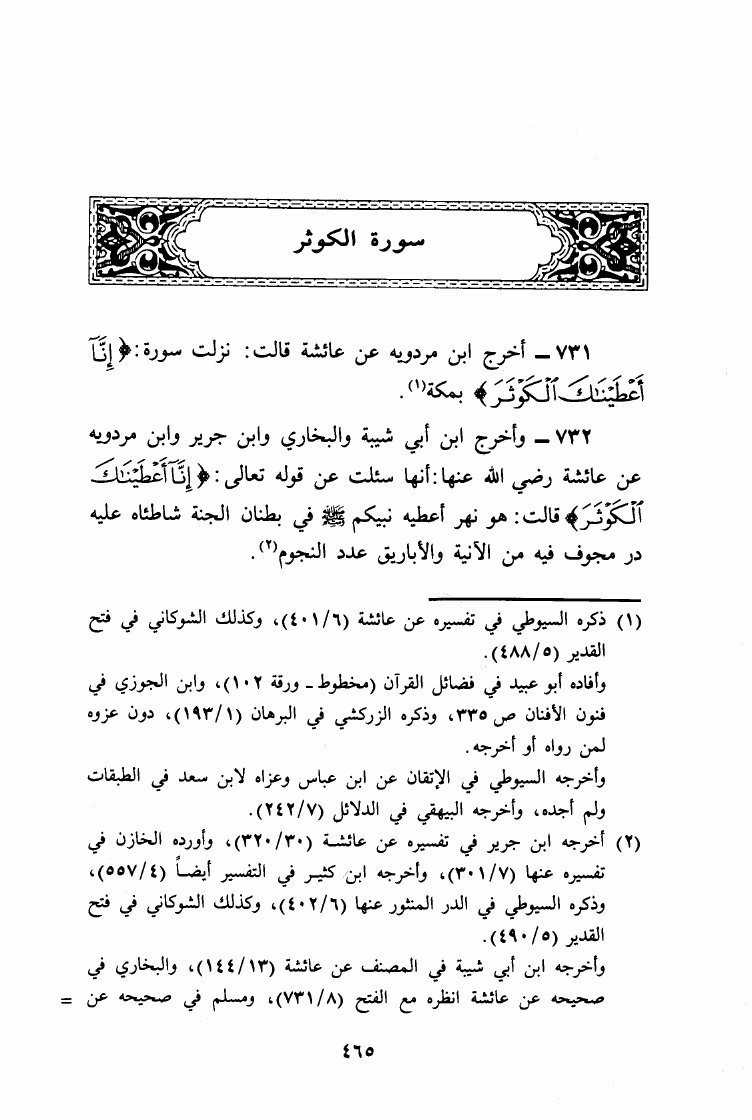 سورة الكوثر
٧٣١ ـ أخرج ابن مردويه عن عائشة قالت: نزلت سورة: ﴿إِنَّآ
أَعْطَيْنَٰكَ ٱلْكَوْثَرَ﴾ بمكة(١).
٧٣٢ ـ وأخرج ابن أبي شيبة والبخاري وابن جرير وابن مردويه
عن عائشة رضي الله عنها: أنها سئلت عن قوله تعالى: ﴿إِنَّآ أَعْطَيْنَٰكَ
ٱلْكَوْثَرَ﴾ قالت: هو نهر أعطيه نبيكم ﷺ في بطنان الجنة شاطئاه عليه
در مجوف فيه من الآنية والأباريق عدد النجوم(٢).
(١) ذكره السيوطي في تفسيره عن عائشة (٤٠١/٦)، وكذلك الشوكاني في فتح
القدير (٤٨٨/٥).
وأفاده أبو عبيد في فضائل القرآن (مخطوط ـ ورقة ١٠٢)، وابن الجوزي في
فنون الأفنان ص ٣٣٥، وذكره الزركشي في البرهان (١٩٣/١)، دون عزوه
لمن رواه أو أخرجه.
وأخرجه السيوطي في الإتقان عن ابن عباس وعزاه لابن سعد في الطبقات
ولم أجده، وأخرجه البيهقي في الدلائل (٢٤٢/٧).
(٢) أخرجه ابن جرير في تفسيره عن عائشة (٣٢٠/٣٠)، وأورده الخازن في
تفسيره عنها (٣٠١/٧)، وأخرجه ابن كثير في التفسير أيضاً (٥٥٧/٤)،
وذكره السيوطي في الدر المنثور عنها (٤٠٢/٦)، وكذلك الشوكاني في فتح
القدير (٤٩٠/٥).
وأخرجه ابن أبي شيبة في المصنف عن عائشة (١٤٤/١٣)، والبخاري في
صحيحه عن عائشة انظره مع الفتح (٧٣١/٨)، ومسلم في صحيحه عن =
٤٦٥